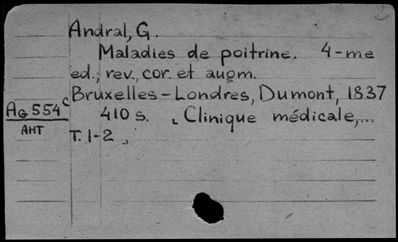 Andral, G.
Maladies de poitrine. 4-me
ed., rev., cor. et augm.
Bruxelles-Londres, Dumont, 1837
410 s. „Clinique médicale,...
T. 1-2„
Ag 554c
AHT